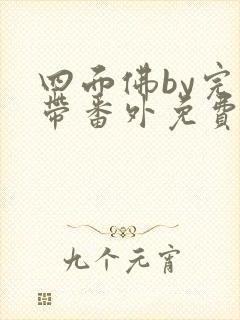 四面佛by完
带番外免费
九个元宵